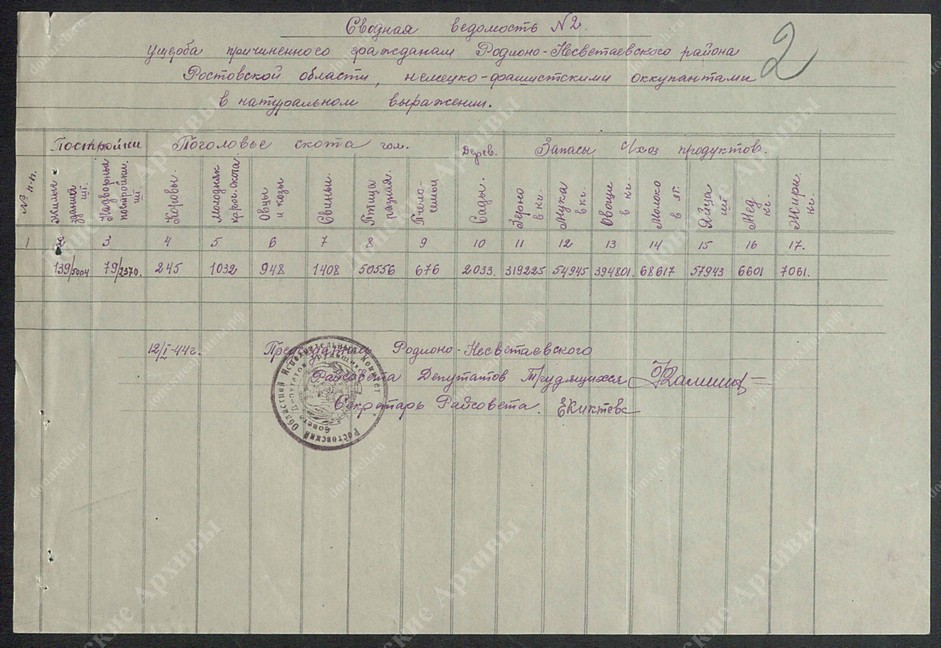 Сводная ведомость №2.
2
ущерба причиненного гражданам Родионо-Несветаевского района
Ростовской области, немецко-фашистскими оккупантами
в натуральном выражении.
Постройки Поголовье скота гол. Дерев. Запасы с/хоз продуктов.
№ п.п. Жилых зданий шт. Надворных построек шт Коровы. Молодняк круп. скота Овцы и козы Свиньи Птица разная. Пчело-семьи Сады. Зерно в кг. Мука в кг. Овощи в кг. Молоко в кг. Яйца шт Мед. кг Жиры. кг
1 3 4 5 6 7 8 9 10 11 12 13 14 15 16 17.
139/5004 79/2370. 245 1032 948 1408 50556 676 2033. 319225 54945 394801. 68617 57943 6601 7061.
12/I-44г. Председатель Родионо-Несветаевского
Райсовета Депутатов Трудящихся
Секретарь Райсовета.
Ростовский Областной Исполнительный Комитет
Донские Архивы
donarch.ru